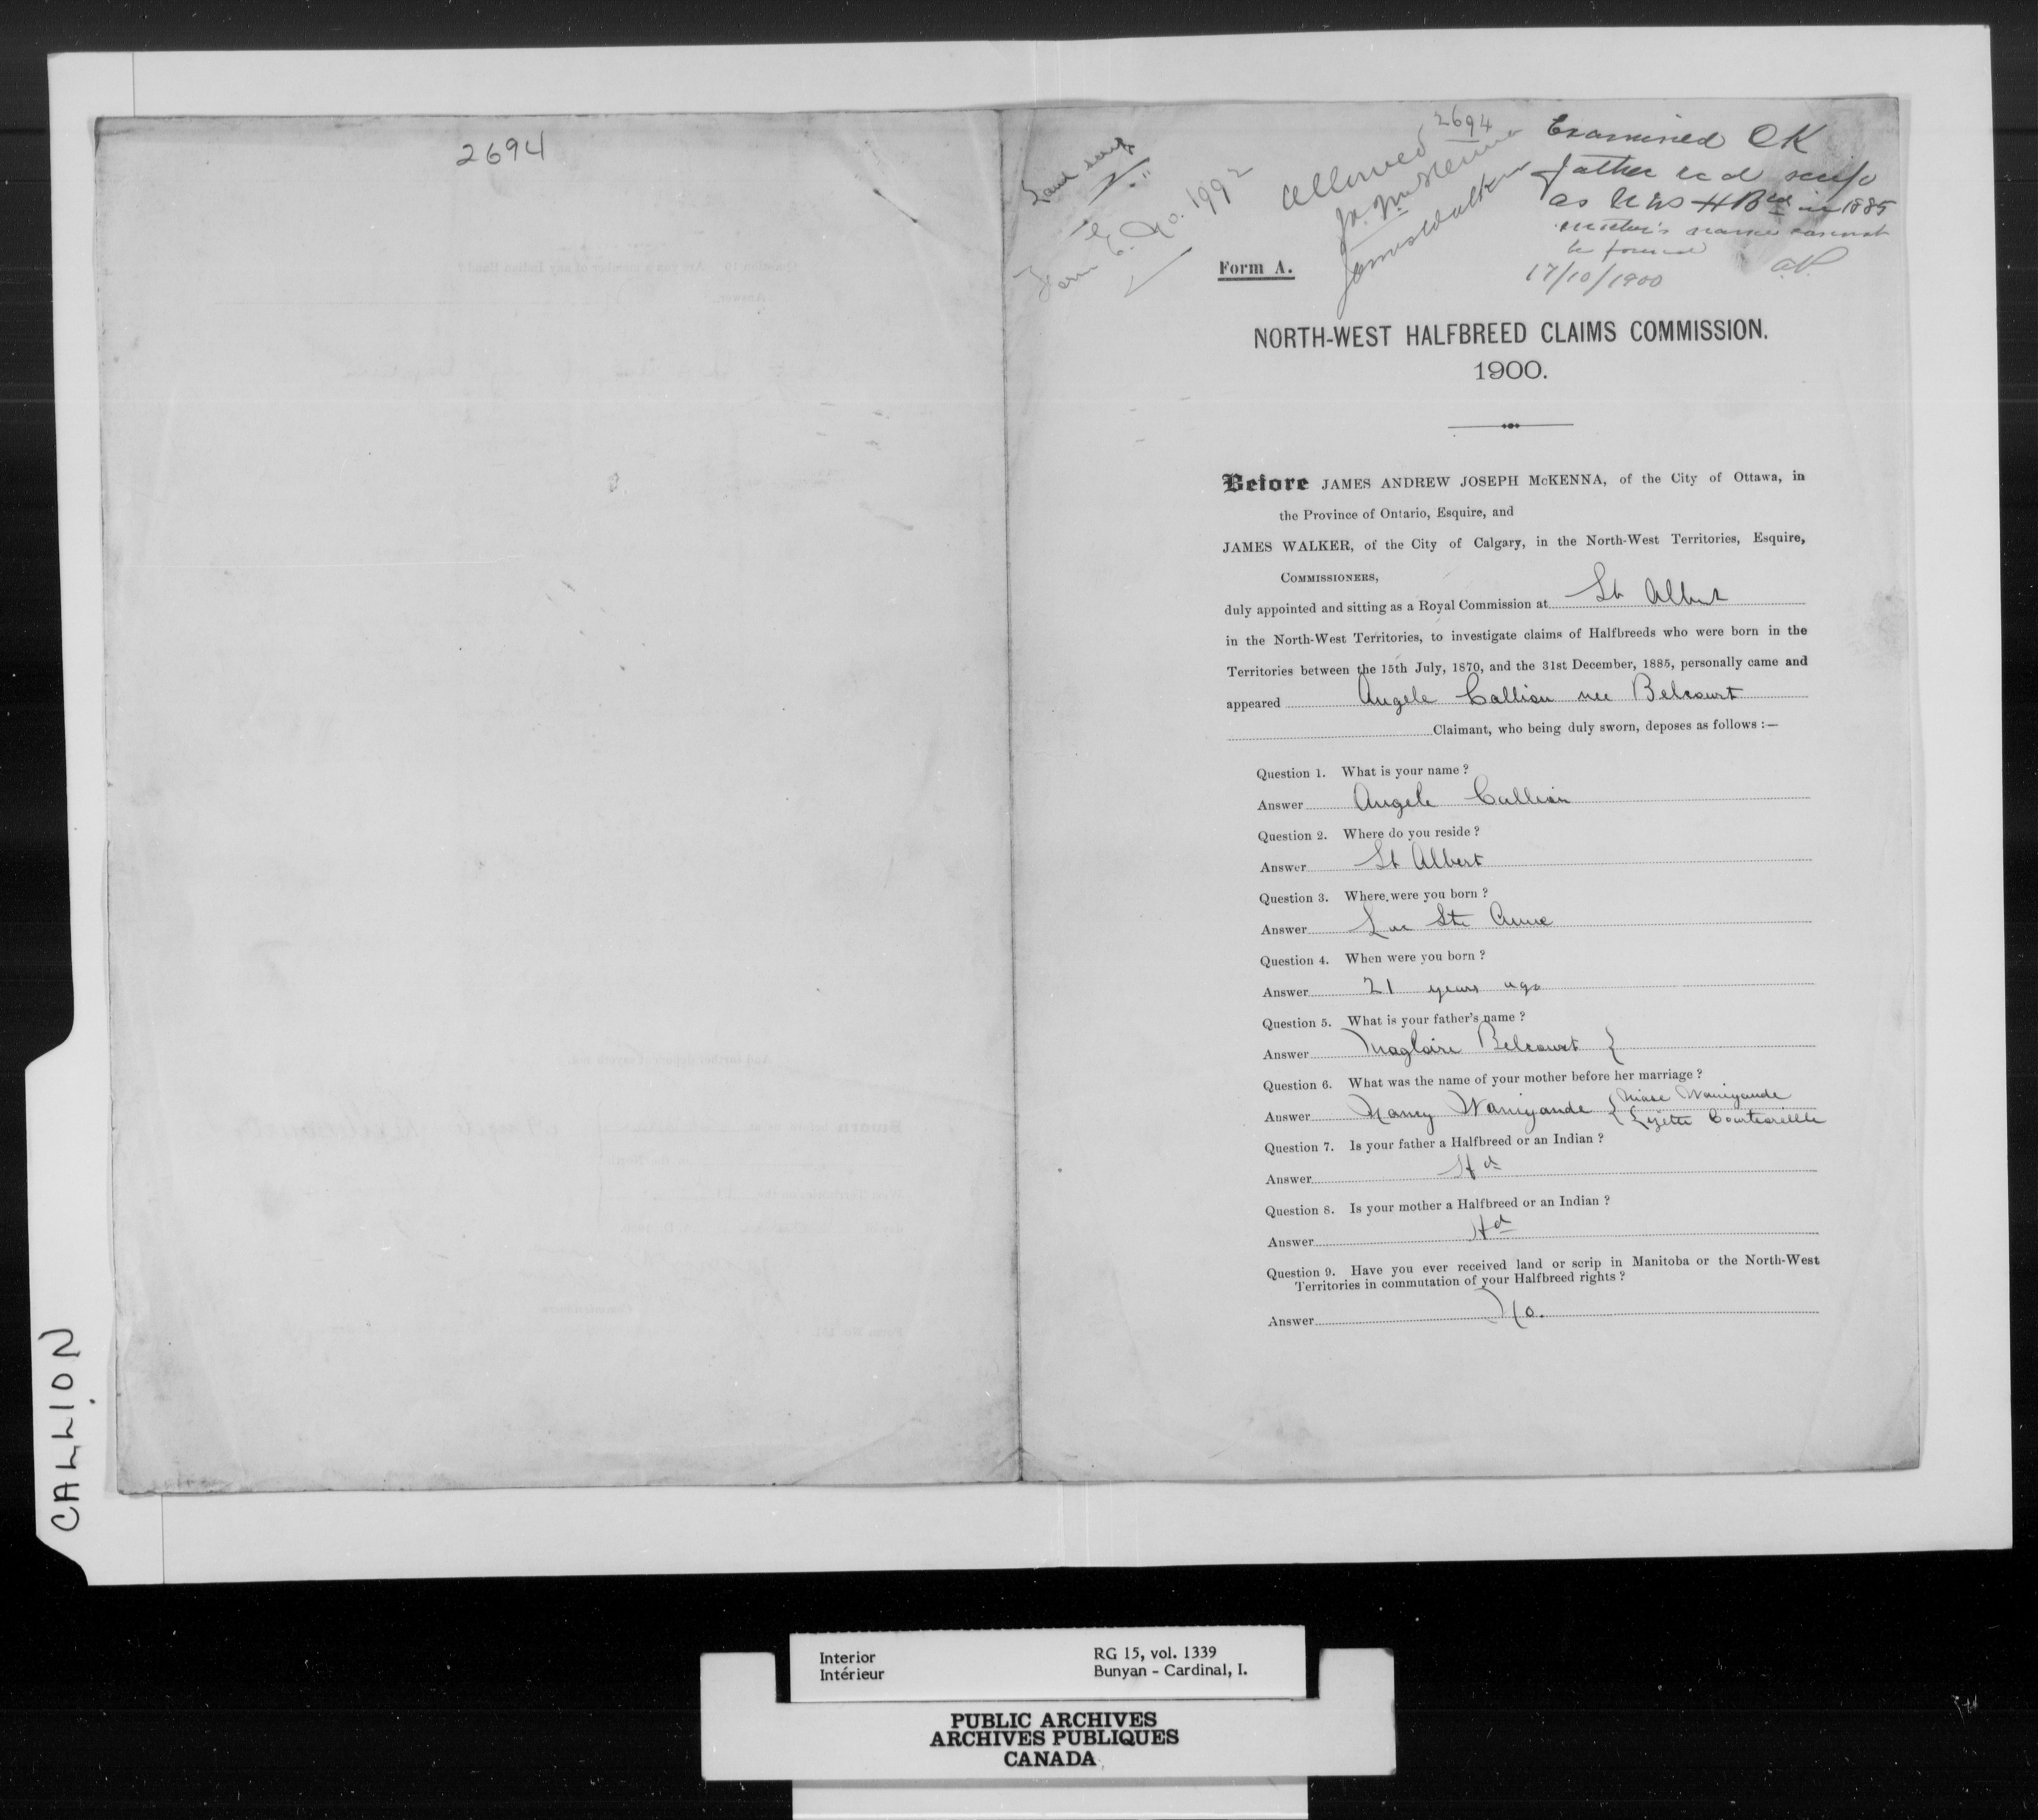 2694
Land scrip
Form E. No. 1992
Allowed
2694
J. A. J. McKenna
James Walker
Examined OK
father rcd scrip
as NWS HBrd in 1885
mother's name cannot
be found
17/10/1900
Form A.
NORTH-WEST HALFBREED CLAIMS COMMISSION.
1900.
Before JAMES ANDREW JOSEPH McKENNA, of the City of Ottawa, in
the Province of Ontario, Esquire, and
JAMES WALKER, of the City of Calgary, in the North-West Territories, Esquire,
COMMISSIONERS,
duly appointed and sitting as a Royal Commission at St Albert
in the North-West Territories, to investigate claims of Halfbreeds who were born in the
Territories between the 15th July, 1870, and the 31st December, 1885, personally came and
appeared Angele Callion nee Belcourt
Claimant, who being duly sworn, deposes as follows :—
Question 1. What is your name ?
Answer Angele Callion
Question 2. Where do you reside ?
Answer St Albert
Question 3. Where were you born ?
Answer Lac Ste Anne
Question 4. When were you born ?
Answer 21 years ago
Question 5. What is your father's name ?
Answer Magloire Belcourt }
Question 6. What was the name of your mother before her marriage ?
Answer Nancy Waniyande { Miase Waniyande
{ Lizette Courtoreille
Question 7. Is your father a Halfbreed or an Indian ?
Answer Hd
Question 8. Is your mother a Halfbreed or an Indian ?
Answer Hd
Question 9. Have you ever received land or scrip in Manitoba or the North-West
Territories in commutation of your Halfbreed rights ?
Answer No.
CALLION
Interior
Intérieur
RG 15, vol. 1339
Bunyan - Cardinal, I.
PUBLIC ARCHIVES
ARCHIVES PUBLIQUES
CANADA